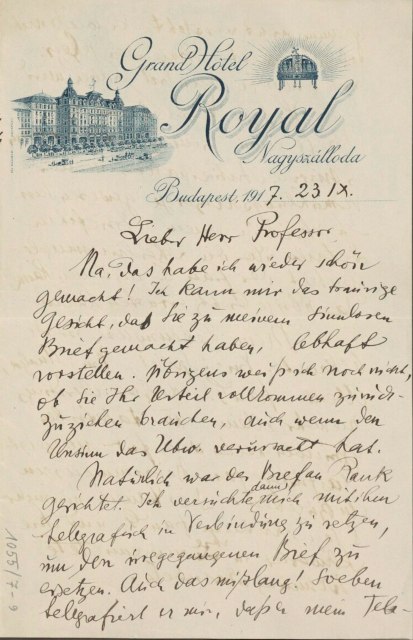 Grand Hôtel
Royal
Nagyszálloda
Budapest, 1917. 23 IX.
Lieber Herr Professor
Na, das habe ich wieder schön
gemacht! Ich kann mir das traurige
Gesicht, das Sie zu meinem sinnlosen
Brief gemacht haben, lebhaft
vorstellen. Übrigens weiß ich noch nicht,
ob Sie Ihr Urteil vollkommen zurück-
zuziehen brauchen, auch wenn den
Unsinn das Ubw. verursacht hat.
Natürlich war der Brief an Rank
gerichtet. Ich versuchte dann, mich mit ihm
telegrafisch in Verbindung zu setzen,
um den irregegangenen Brief zu
ersetzen. Auch das mißlang! Soeben
telegrafiert er mir, daß er mein Tele-
1055/7-9